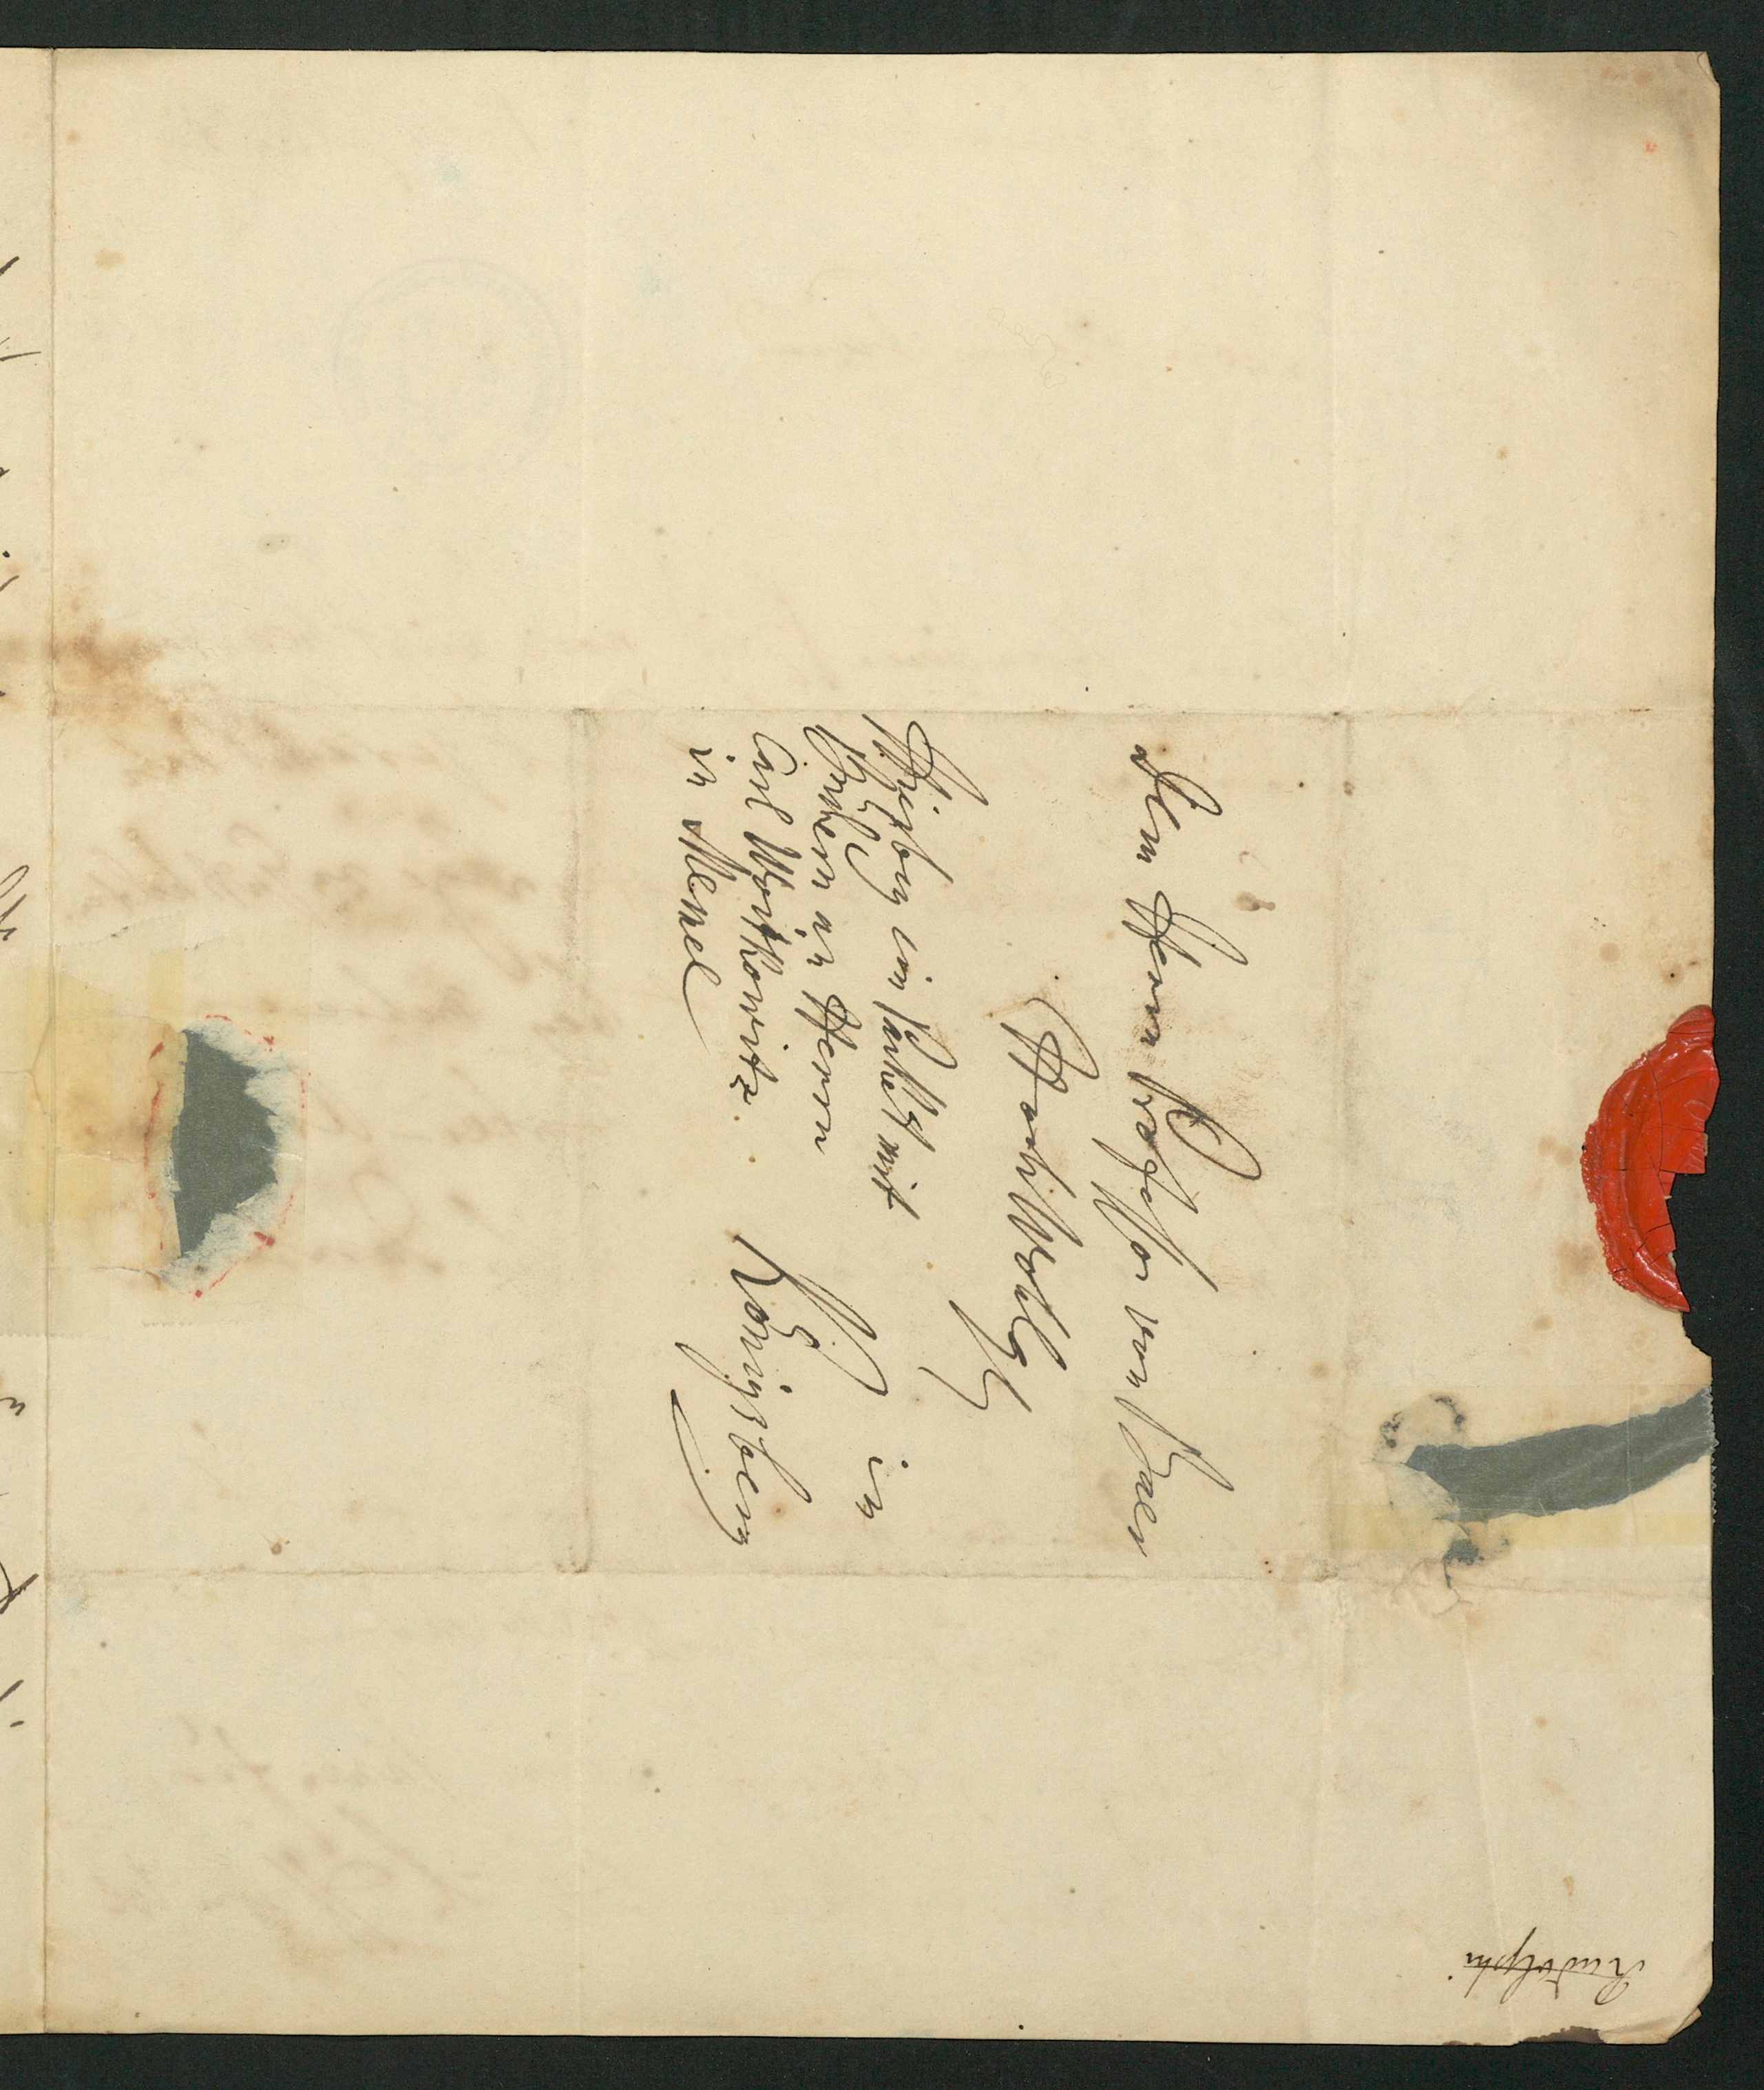 dem Herrn Professor von Baer
Hochwohlg
in
Königsberg
Hierbey ein Packet mit
Büchern an Herrn
Carl Woitkowitz
in Memel
Rudolphi